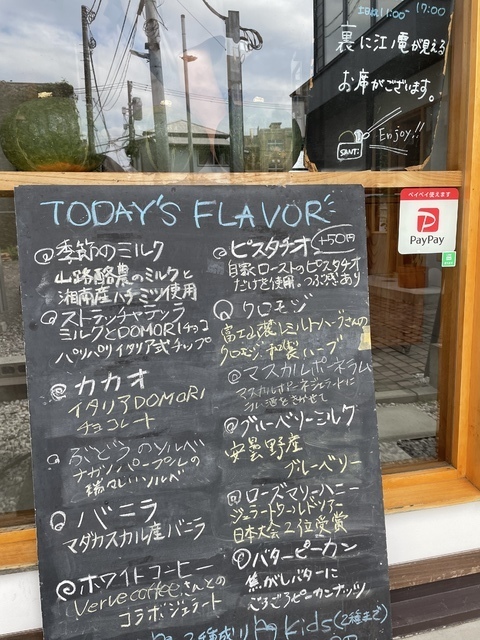 土日は11:00~17:00
裏に江ノ電が見える
お席がございます。
Enjoy!!
SANTi
TODAY'S FLAVOR
季節のミルク
山路酪農のミルクと
湘南産ハチミツ使用
ストラッチャテッラ
ミルクとDOMORIチョコ
パリパリイタリア式チップ
カカオ
イタリアDOMORI
チョコレート
ぶどうのソルベ
ナガノパープルの
瑞々しいソルベ
バニラ
マダガスカル産バニラ
ホワイトコーヒー
Verve coffeeさんとの
コラボジェラート
ピスタチオ +50円
自家ローストのピスタチオ
だけを使用。つぶ感あり
クロモジ
富士山麓レミルトハーブさんの
クロモジ 和製ハーブ
マスカルポーネラム
マスカルポーネジェラートに
ラム酒をきかせて
ブルーベリーミルク
安曇野産
ブルーベリー
ローズマリーハニー
ジェラートワールドツアー
日本大会2位受賞
バターピーカン
焦がしバターに
ごろごろピーカンナッツ
2種盛り
Kids(2種まで)
ペイペイ使えます
PayPay